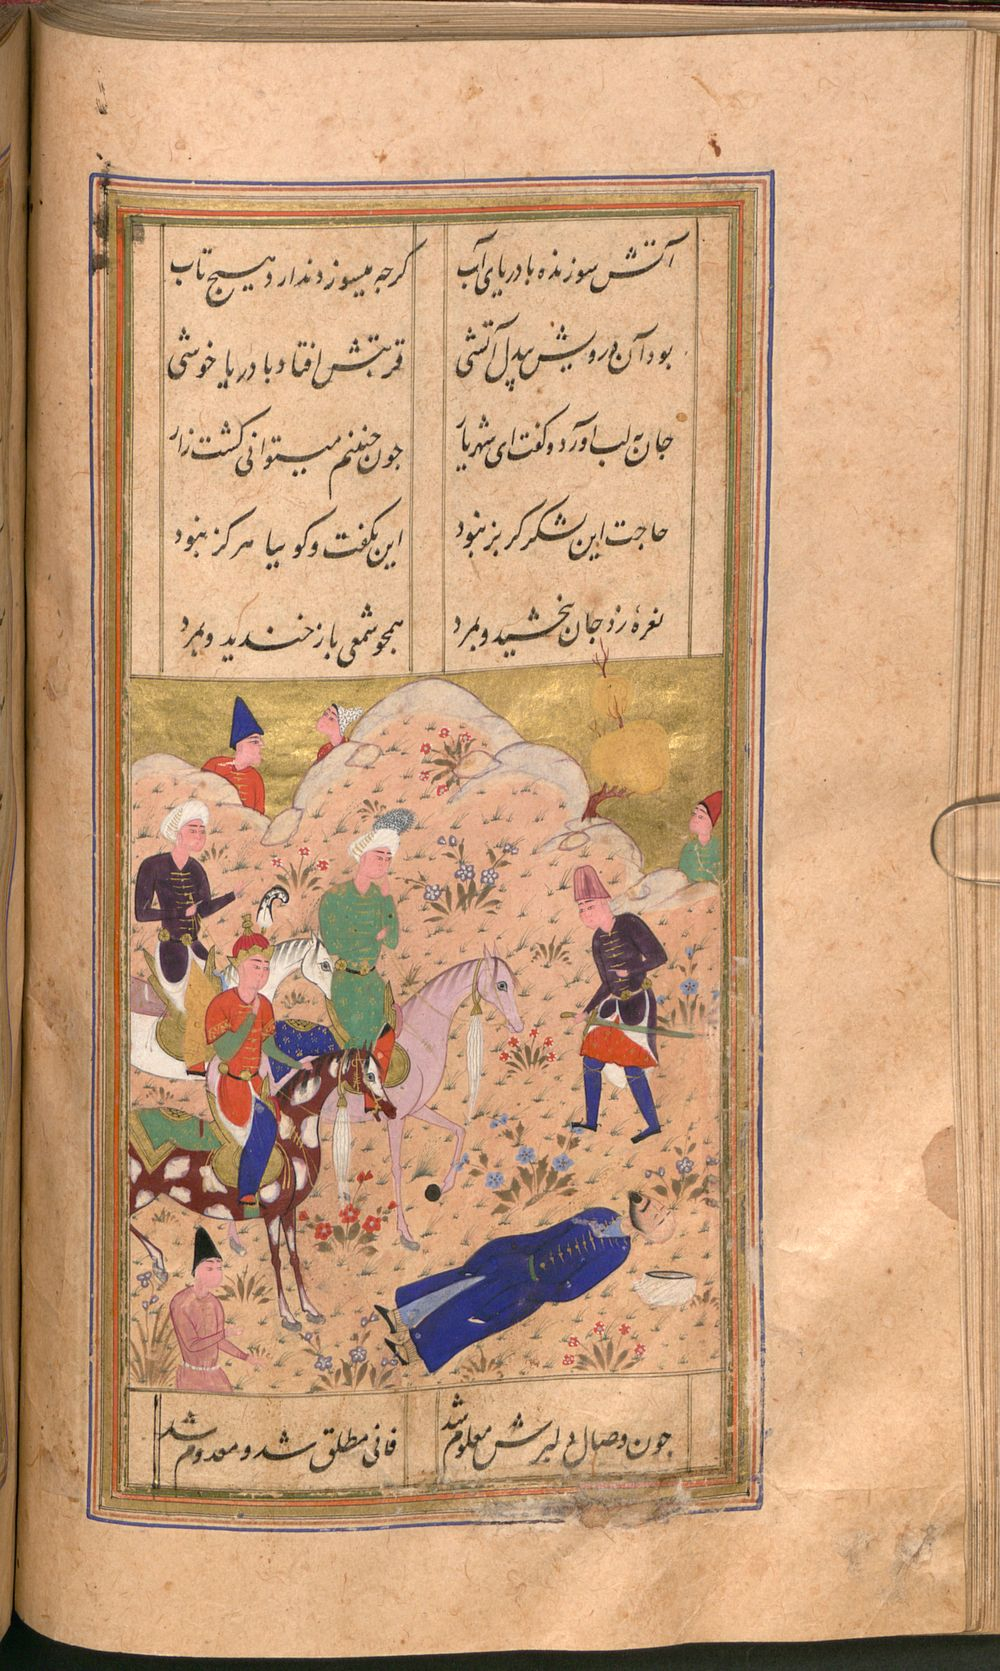 آتش سوزنده با دریای آب
کرجه میسوزد ندارد هیچ تاب
بود آن درویش بیدل آتشی
قربتش افتاد با دریا خوشی
جان به لب آورد و کفت ای شهریار
جون جنینم میتوانی کشت زار
حاجت این لشکر کربز نبود
این بکفت و کوییا هرکز نبود
نعرهٔ زد جان ببخشید و بمرد
همجو شمعی باز خندید و بمرد
جون وصال دلبرش معلوم شد
فانی مطلق شد و معدوم شد